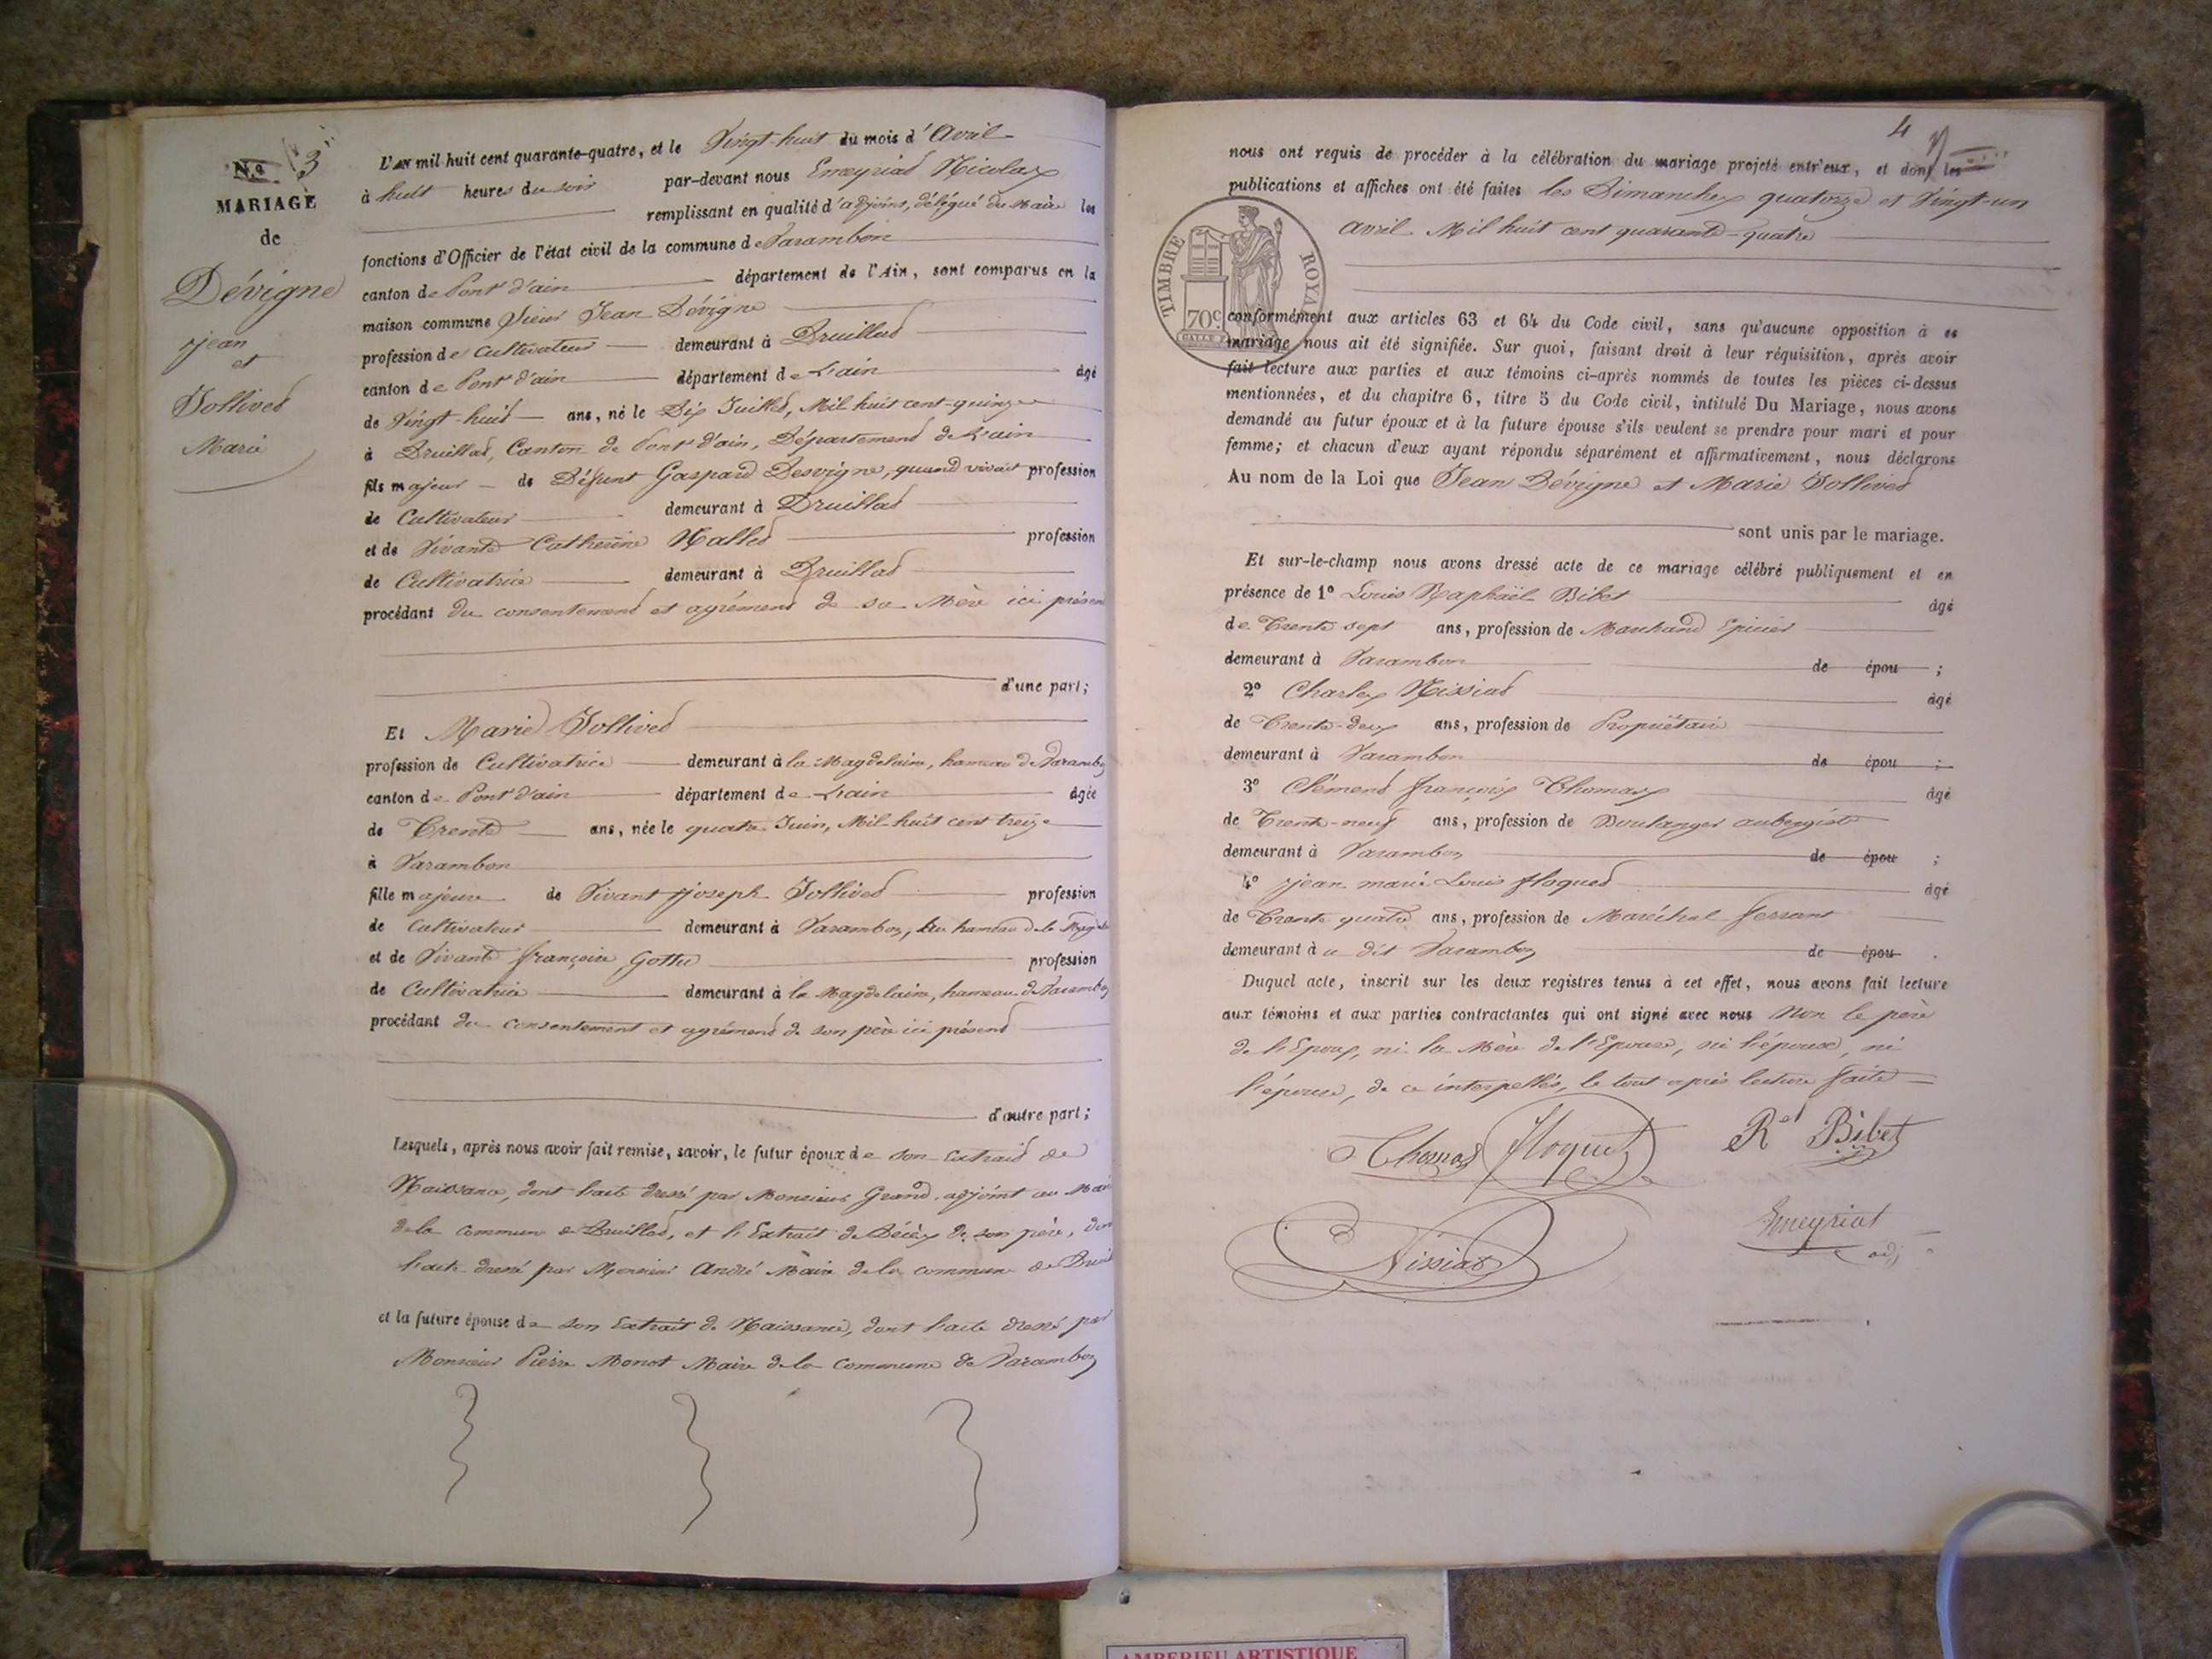 N.º 3
MARIAGE
de
Dévigne
jean
et
Jollivet
Marie
L'AN mil huit cent quarante-quatre, et le Vingt-huit du mois d'Avril
à huit heures du soir par-devant nous Emeyriat Nicolas
remplissant en qualité d'adjoint, délégué du Maire les
fonctions d'Officier de l'état civil de la commune de Varambon
canton de Pont d'ain département de l'Ain, sont comparus en la
maison commune Sieur Jean Dévigne
profession de Cultivateur demeurant à Druillat
canton de Pont d'ain département de L'ain âgé
de Vingt-huit ans, né le Dix Juillet, Mil huit cent quinze
à Druillat, Canton de Pont d'ain, Département de L'ain
fils majeur de Défunt Gaspard Desvigne, quand vivait profession
de Cultivateur demeurant à Druillat
et de Vivante Catherine Nallet profession
de Cultivatrice demeurant à Druillat
procédant du consentement et agrément de sa Mère ici présen
d'une part;
Et Marie Jollivet
profession de Cultivatrice demeurant à la Magdelaine, hameau de Varambon
canton de Pont d'ain département de L'ain âgée
de Trente ans, née le quatre Juin, Mil huit cent treize
à Varambon
fille majeure de Vivant joseph Jollivet profession
de Cultivateur demeurant à Varambon, au hameau de la
et de Vivante françoise Gottu profession
de Cultivatrice demeurant à la Magdelaine, hameau de Varambon
procédant du consentement et agrément de son père ici présent
d'autre part;
Lesquels, après nous avoir fait remise, savoir, le futur époux de son Extrait de
Naissance, dont l'acte dressé par Monsieur Grand adjoint au Maire
de la commune de Druillat, et l'Extrait de Décès de son père, dont
l'acte dressé par Monsieur André Maire de la commune de
et la future épouse de son Extrait de Naissance, dont l'acte dressé par
Monsieur Pierre Monot Maire de la Commune de Varambon
4
nous ont requis de procéder à la célébration du mariage projeté entr'eux, et dont les
publications et affiches ont été faites les Dimanches quatorze et Vingt-un
avril Mil huit cent quarante-quatre
TIMBRE ROYAL
70c
conformément aux articles 63 et 64 du Code civil, sans qu'aucune opposition à ce
mariage nous ait été signifiée. Sur quoi, faisant droit à leur réquisition, après avoir
fait lecture aux parties et aux témoins ci-après nommés de toutes les pièces ci-dessus
mentionnées, et du chapitre 6, titre 5 du Code civil, intitulé Du Mariage, nous avons
demandé au futur époux et à la future épouse s'ils veulent se prendre pour mari et pour
femme; et chacun d'eux ayant répondu séparément et affirmativement, nous déclarons
Au nom de la Loi que Jean Dévigne et Marie Jollivet
sont unis par le mariage.
Et sur-le-champ nous avons dressé acte de ce mariage célébré publiquement et en
présence de 1º Louis Raphaël Bibet âgé
de Trente sept ans, profession de Marchand Epicier
demeurant à Varambon de épou ;
2º Charles Nissiat âgé
de Trente-deux ans, profession de Propriétaire
demeurant à Varambon de épou ;
3º Clément françois Thomas âgé
de Trente-neuf ans, profession de Boulanger aubergiste
demeurant à Varambon de épou ;
4º jean marie Louis floquet âgé
de Trente quatre ans, profession de Maréchal ferrant
demeurant à u dit Varambon de épou .
Duquel acte, inscrit sur les deux registres tenus à cet effet, nous avons fait lecture
aux témoins et aux parties contractantes qui ont signé avec nous Non le père
de l'Epoux, ni la Mère de l'Epouse, ni l'époux, ni
l'épouse, de ce interpellés, le tout après lecture faite
Thomas floquet Rel Bibet
Nissiat Emeyriat
adj
AMBERIEU ARTISTIQUE